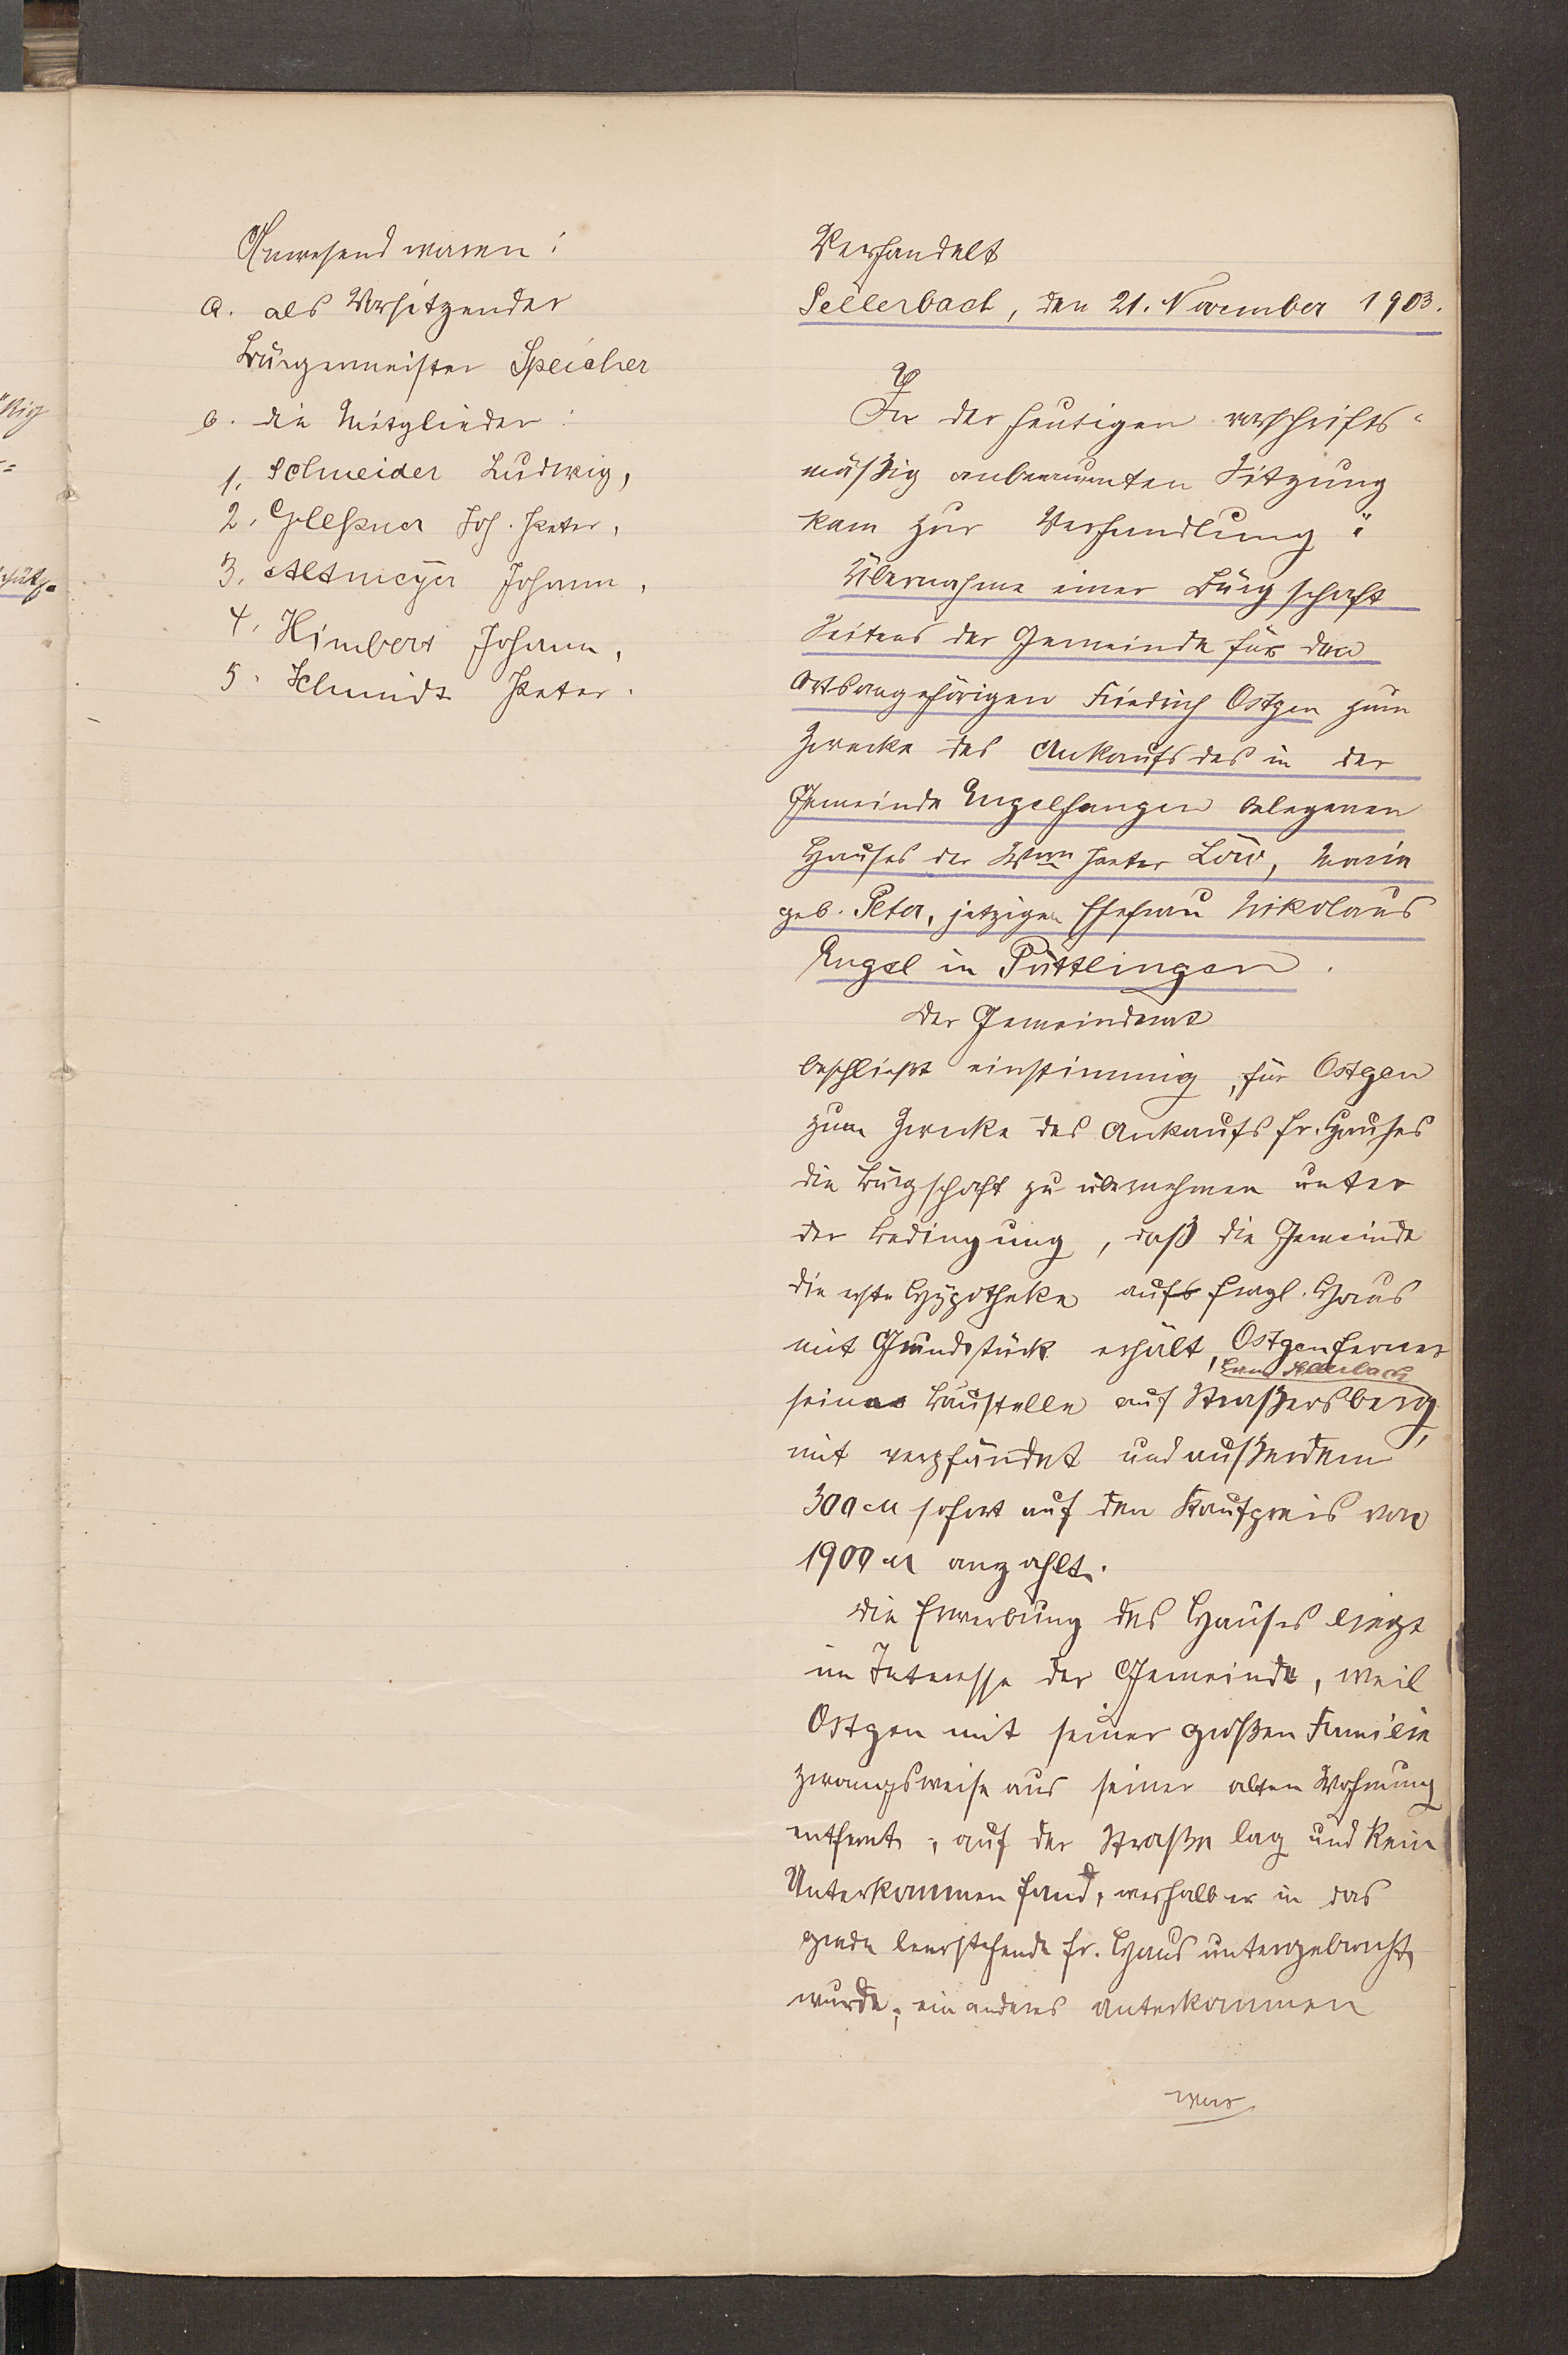 Anwesend waren:
a. als Vorsitzender
Bürgermeister Speicher
b. die Mitglieder:
1. Schneider Ludwig,
2. Gleßner Joh. Peter,
3. Altmeyer Johann,
4. Himbert Johann,
5. Schmidt Peter.
Verhandelt
Sellerbach, den 21. November 1903.
In der heutigen vorschrifts-
mäßig anberaumten Sitzung
kam zur Verhandlung:
Übernahme einer Bürgschaft
Seitens der Gemeinde für den
Ortsangehörigen Friedrich Ostgen zum
Zwecke des Ankaufs des in der
Gemeinde Engelfangen belegenen
Hauses der Wwe Peter Löw, Maria
geb. Peter, jetzigen Ehefrau Nikolaus
Engel in Püttlingen.
Der Gemeinderat
beschließt einstimmig, für Ostgen
zum Zwecke des Ankaufs fr. Hauses
die Bürgschaft zu übernehmen unter
der Bedingung, daß die Gemeinde
die erste Hypotheke aufs fragl. Haus
mit Grundstück erhält, Ostgen ferner
Sellerbach
seine Baustelle auf Straßersberg,
mit verpfändet und außerdem
300 M sofort auf den Kaufpreis von
1900 M anzahlt.
Die Erwerbung des Hauses liegt
im Interesse der Gemeinde, weil
Ostgen mit seiner großen Familie
zwangsweise aus seiner alten Wohnung
entfernt, auf der Straße lag und kein
Unterkommen fand, weshalb er in das
grade leerstehende fr. Haus untergebracht
wurde; ein anderes Unterkommen
war